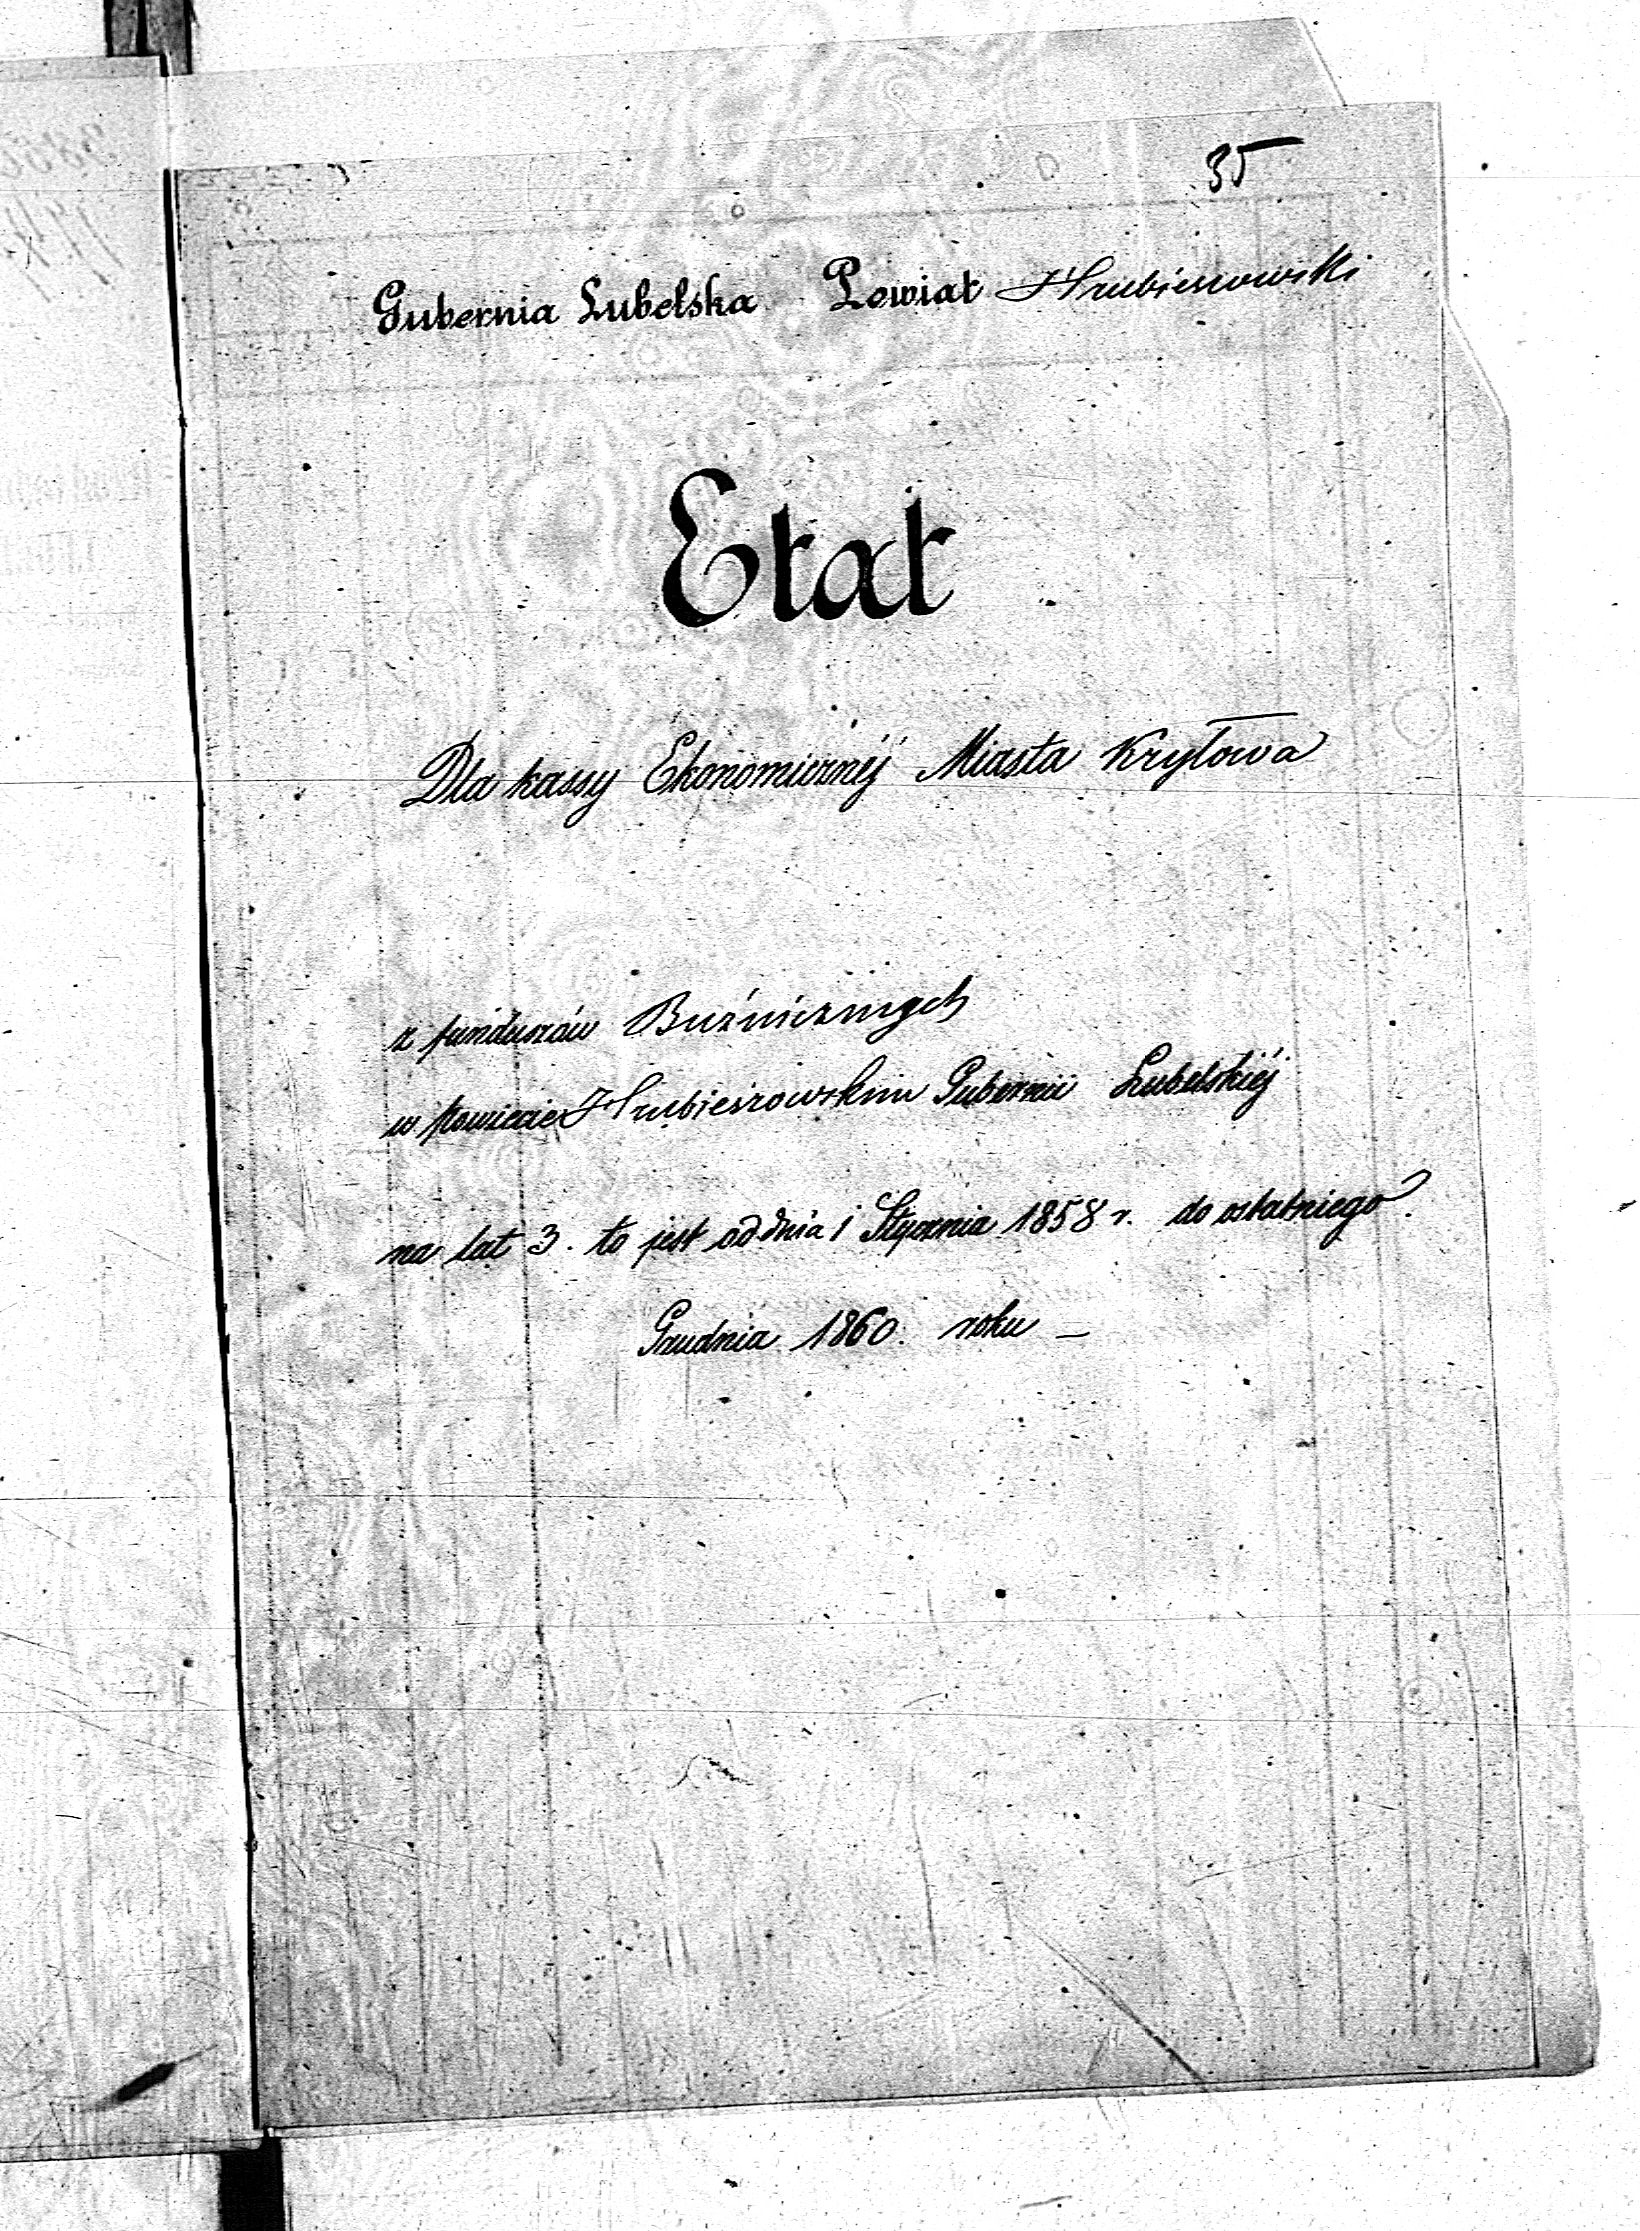 35
Gubernia Lubelska Powiat Hrubieszowski
Etat
Dla kassy Ekonomicznéj Miasta Kryłowa
z funduszów Bużnicznych
w Powiecie Hrubieszowskim Gubernii Lubelskiéj
na lat 3. to jest od dnia 1 Stycznia 1858 r. do ostatniego
Grudnia 1860. roku —